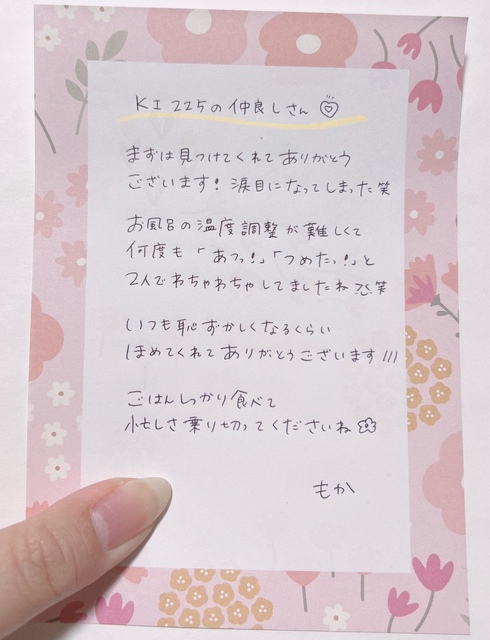 KI225の仲良しさん
まずは見つけてくれてありがとう
ございます！涙目になってしまった笑
お風呂の温度調整が難しくて
何度も「あつっ！」「つめたっ！」と
2人でわちゃわちゃしてましたね笑
いつも恥ずかしくなるくらい
ほめてくれてありがとうございます!!!
ごはんしっかり食べて
忙しさ乗り切ってくださいね
もか